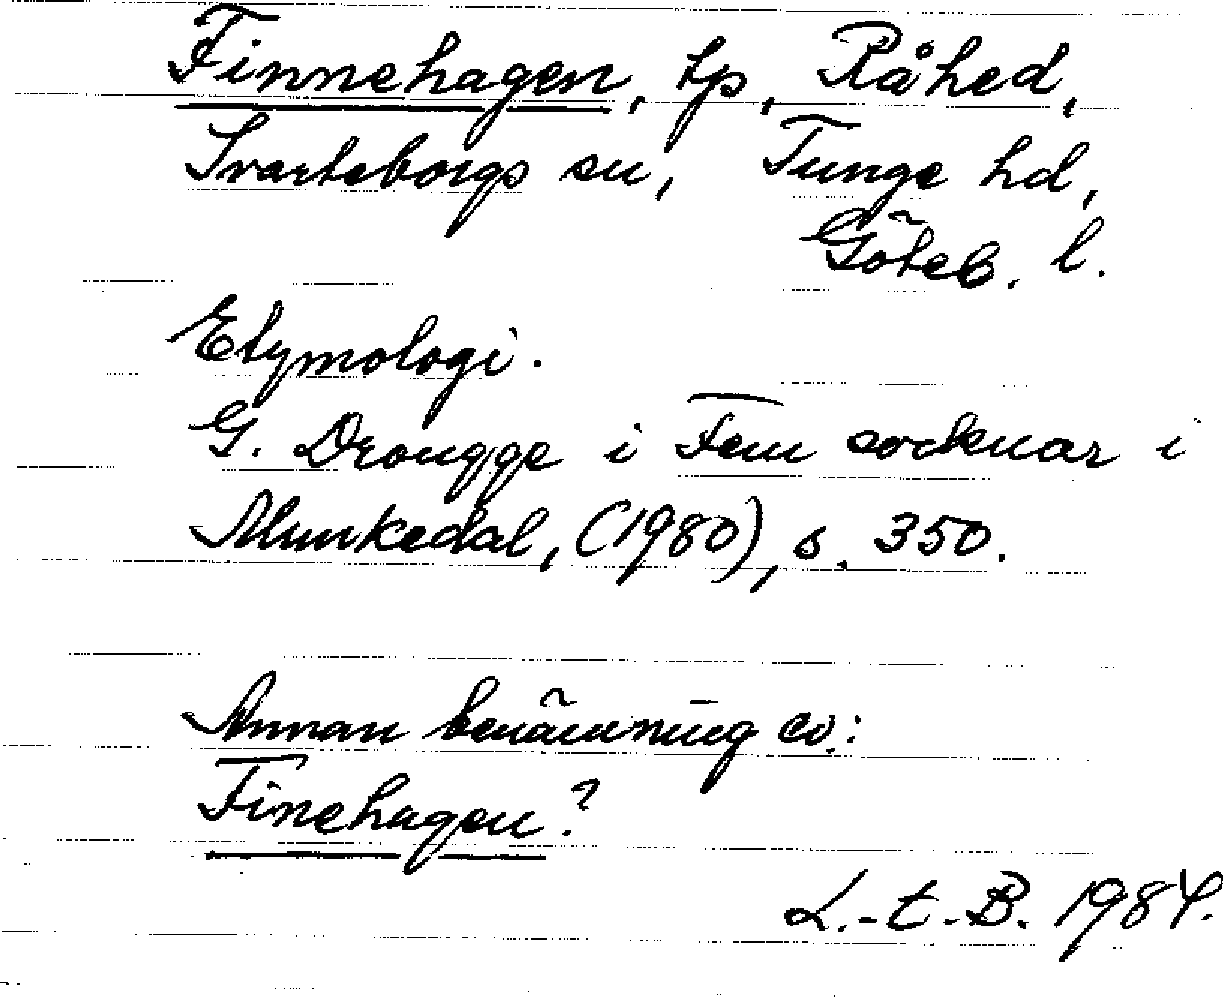 Finnehagen, tp, Råhed,
Svarteborgs sn, Tunge hd,
Göteb. l.
Etymologi.
G. Drougge i Fem socknar i
Munkedal, (1980), s. 350.
Annan benämning ev.:
Finehagen?
L.-t.-B. 1984.